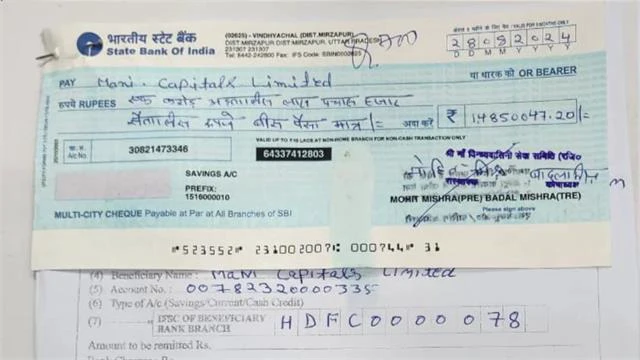 भारतीय स्टेट बैंक
State Bank Of India
(02625) - VINDHYACHAL (DIST.MIRZAPUR)
DIST:MIRZAPUR DIST:MIRZAPUR, UTTAR PRADESH
231307 231307
Tel: 8442-242800 Fax: IFS Code:
VALID FOR 3 MONTHS ONLY
28082024
D D M M Y Y Y Y
PAY Mani Capitals Limited या धारक को OR BEARER
रुपये RUPEES एक करोड़ अड़तालीस लाख पचास हजार
सैंतालीस रुपये बीस पैसा मात्र/= अदा करें ₹ 14850047.20/=
VALID UP TO ₹ 10 LACS AT NON-HOME BRANCH FOR NON-CASH TRANSACTION ONLY
खा. सं.
A/c No. 30821473346 64337412803
श्री माँ विन्ध्यवासिनी सेवा समिति (रजि०
SAVINGS A/C
PREFIX:
1516000010
MOHIT MISHRA(PRE) BADAL MISHRA(TRE)
Please sign above
MULTI-CITY CHEQUE Payable at Par at All Branches of SBI
⑈523552⑈ 231002007⑆ 000744⑈ 31
(4) Beneficiary Name : Mani Capitals Limited
(5) Account No.: 00782320000335
(6) Type of A/c (Savings/Current/Cash Credit)
(7) IFSC OF BENEFICIARY
BANK BRANCH HDFC0000078
Amount to be remitted Rs.